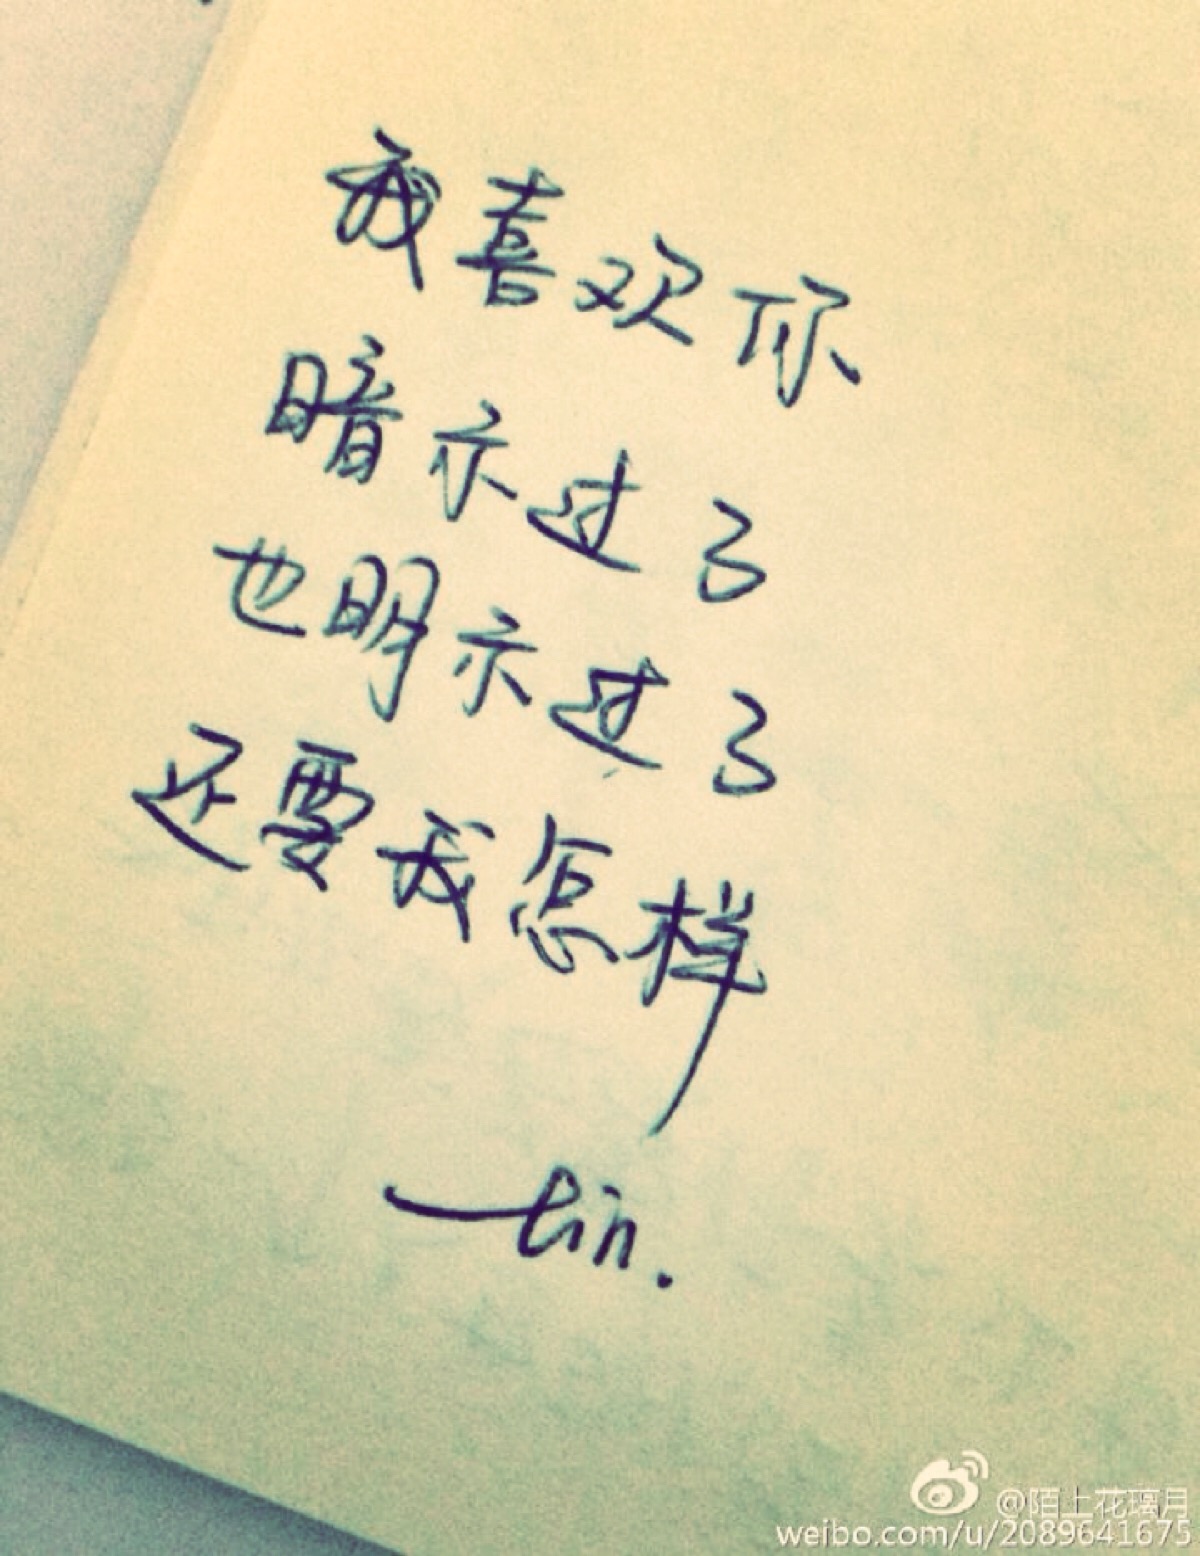 我喜欢你
暗示过了
也明示过了
还要我怎样
—lin.
@陌上花璃月
weibo.com/u/2089641675